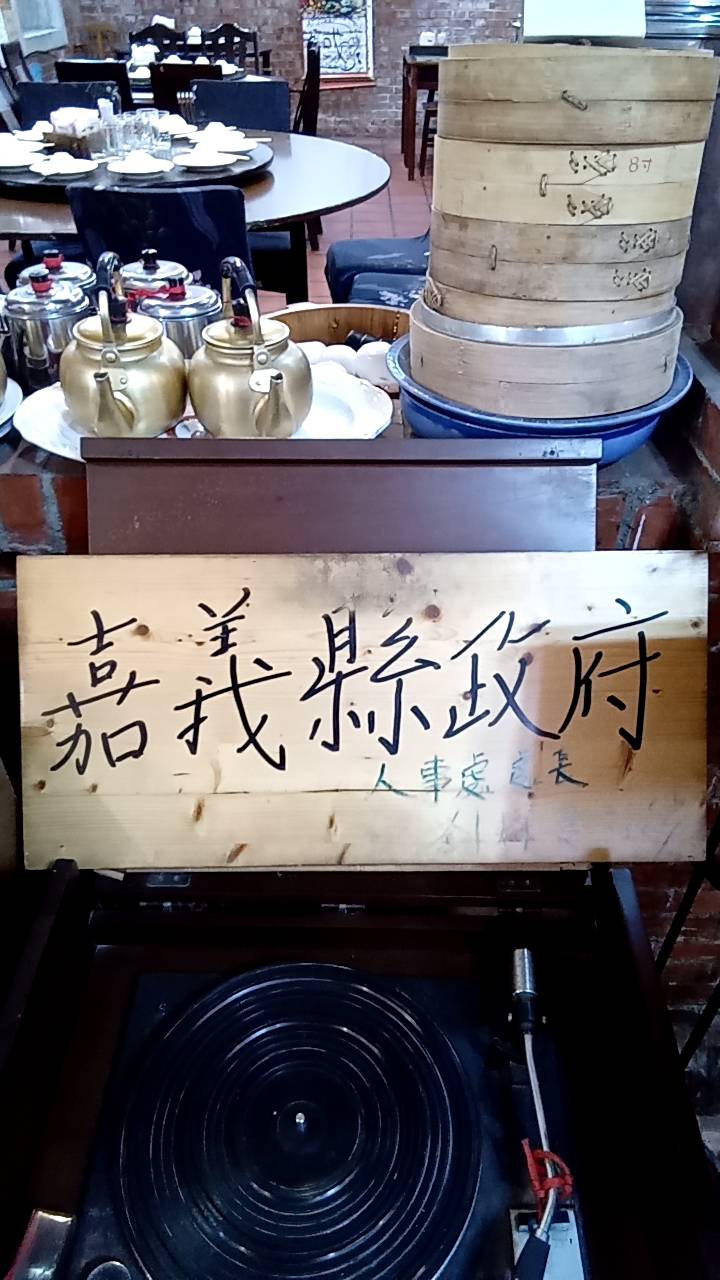 8寸
嘉義縣政府
人事處處長